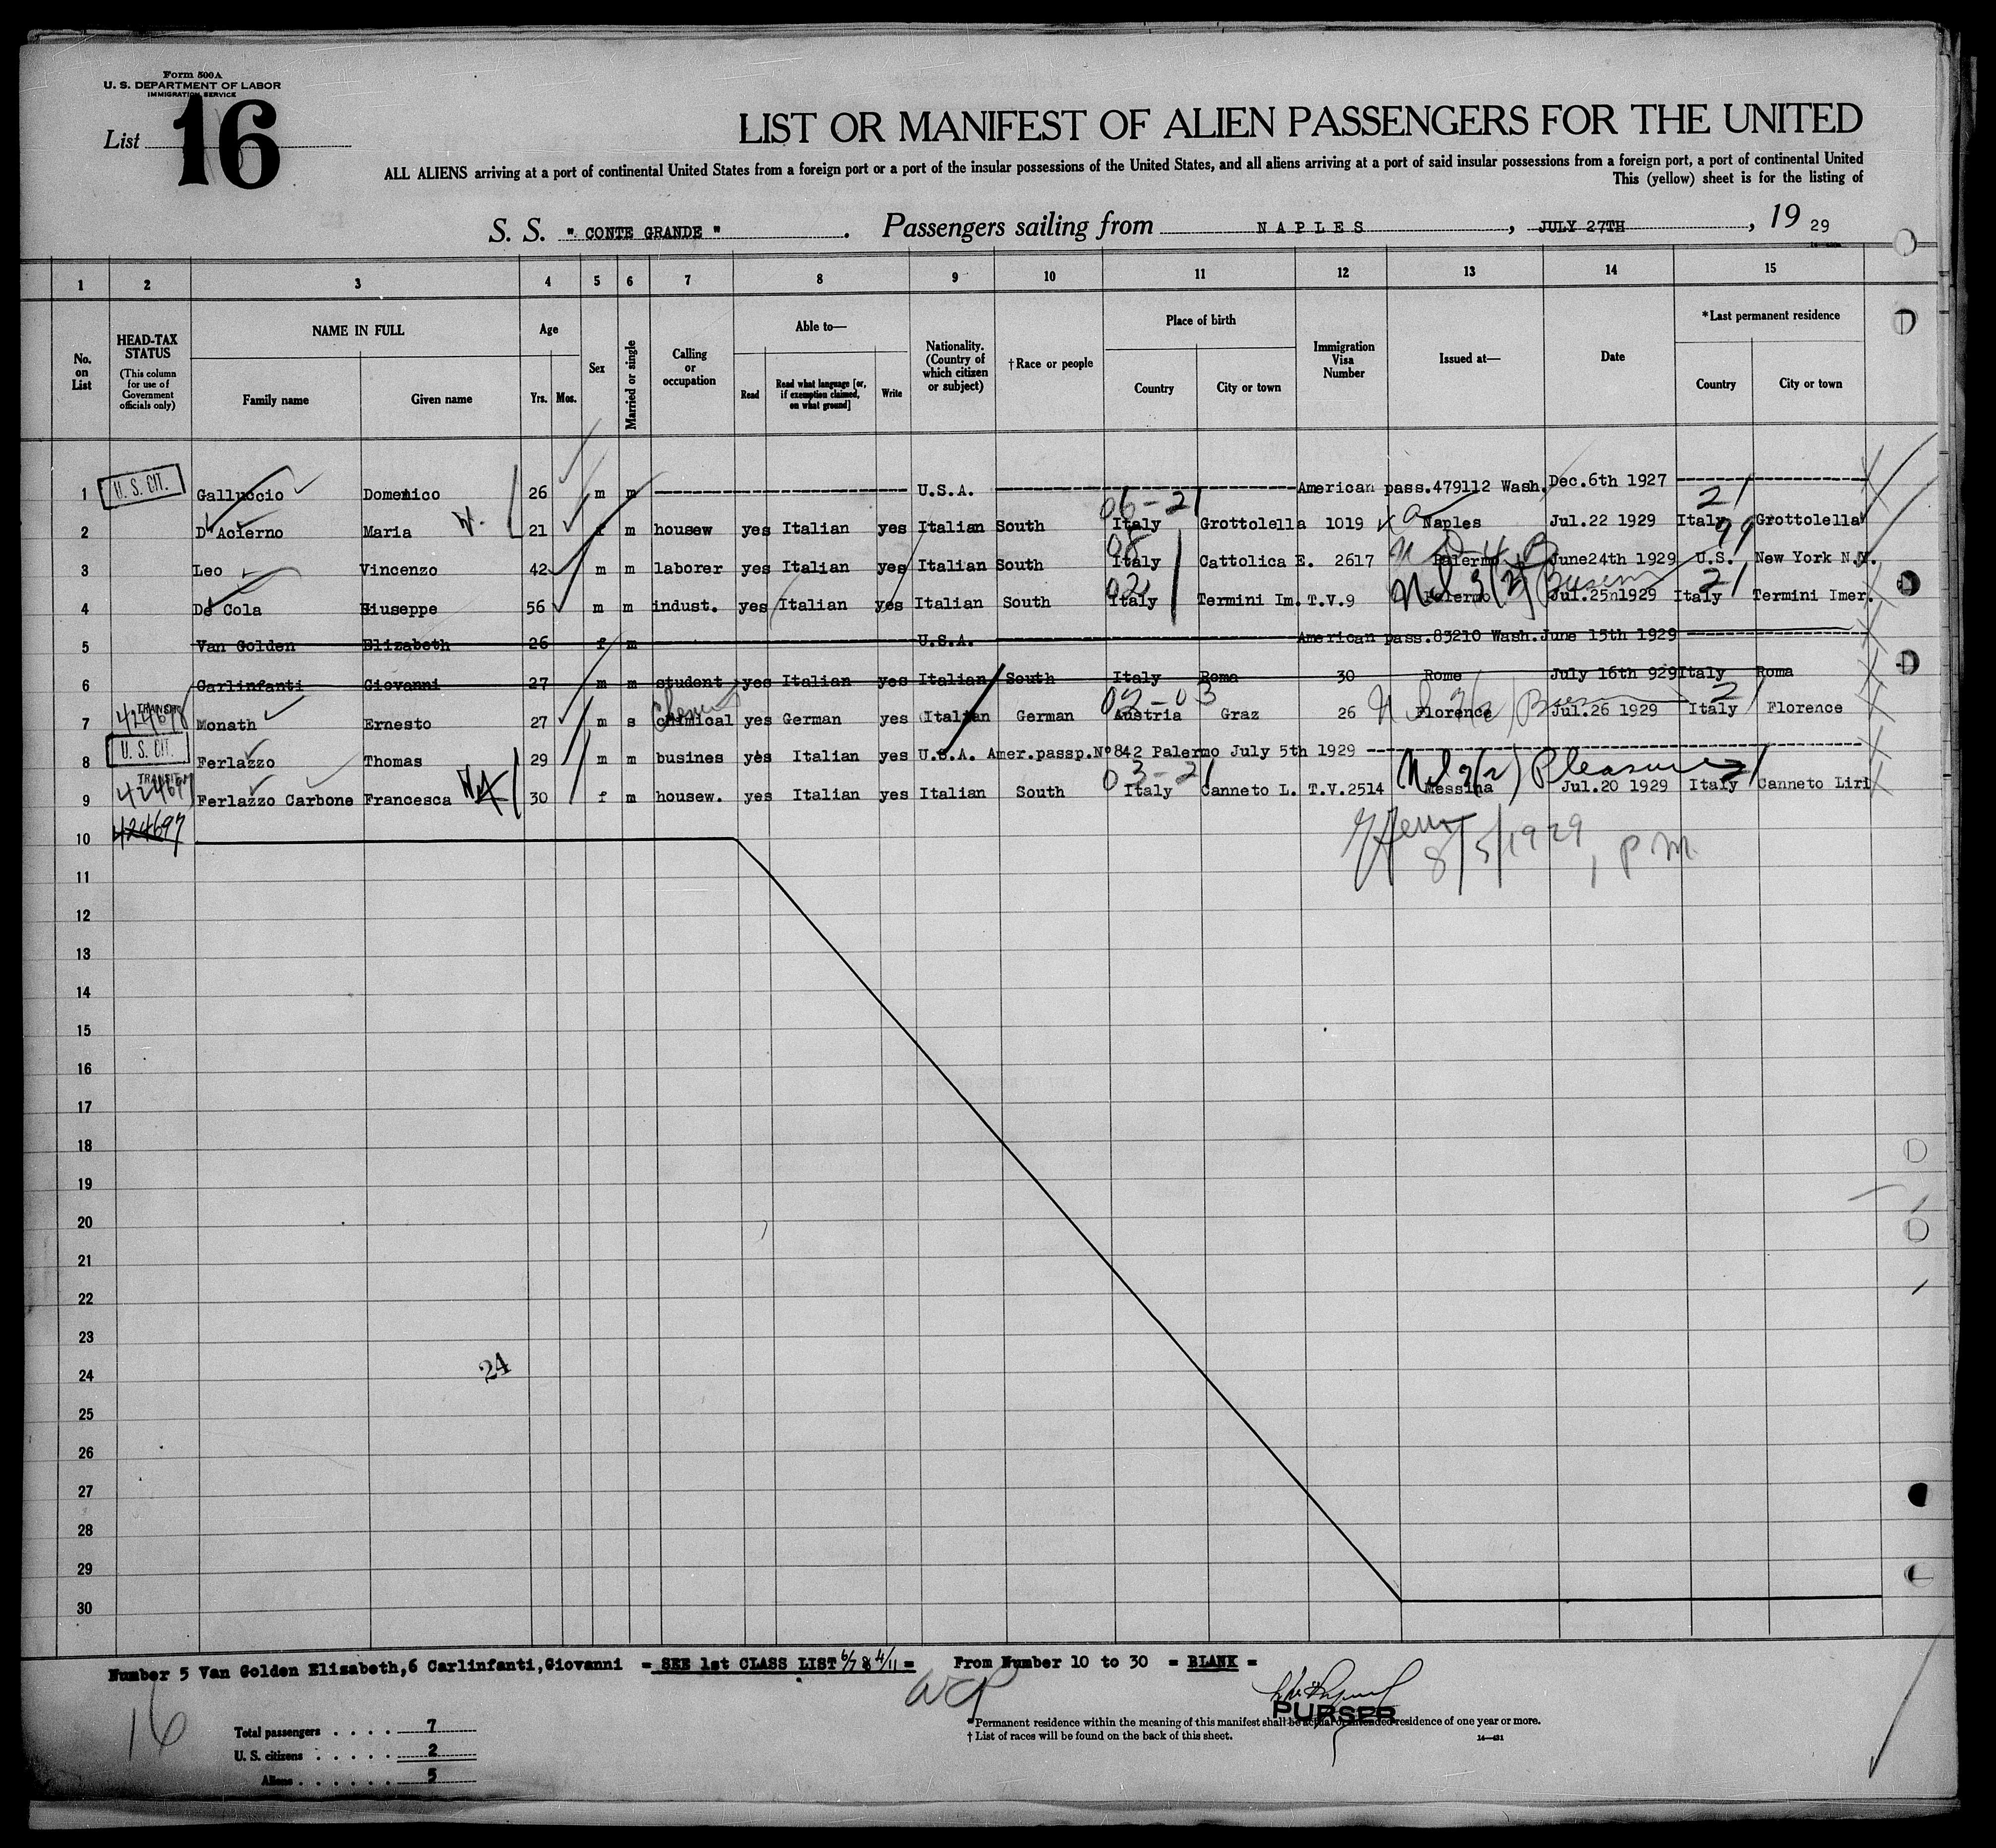 Form 500A
U. S. DEPARTMENT OF LABOR
IMMIGRATION SERVICE
List 16
LIST OR MANIFEST OF ALIEN PASSENGERS FOR THE UNITED
ALL ALIENS arriving at a port of continental United States from a foreign port or a port of the insular possessions of the United States, and all aliens arriving at a port of said insular possessions from a foreign port, a port of continental United
This (yellow) sheet is for the listing of
S. S. " CONTE GRANDE " . Passengers sailing from NAPLES , JULY 27TH , 19 29
1 2 3 4 5 6 7 8 9 10 11 12 13 14 15
No. on List
HEAD-TAX STATUS (This column for use of Government officials only)
NAME IN FULL Family name Given name
Age Yrs. Mos.
Sex
Married or single
Calling or occupation
Able to— Read Read what language [or, if exemption claimed, on what ground] Write
Nationality. (Country of which citizen or subject)
†Race or people
Place of birth Country City or town
Immigration Visa Number
Issued at—
Date
*Last permanent residence Country City or town
1 U. S. CIT. Galluccio Domenico 26 m m U.S.A. American pass.479112 Wash. Dec.6th 1927
06-21 21
2 D'Acierno Maria W. 21 f m housew yes Italian yes Italian South Italy Grottolella 1019 Naples Jul.22 1929 Italy Grottolella
08 99
3 Leo Vincenzo 42 m m laborer yes Italian yes Italian South Italy Cattolica E. 2617 Palermo June24th 1929 U.S. New York N.Y.
02 21
4 De Cola Giuseppe 56 m m indust. yes Italian yes Italian South Italy Termini Im. T.V.9 Palermo Jul.25n1929 Italy Termini Imer.
5 Van Golden Elizabeth 26 f m U.S.A. American pass.83210 Wash. June 15th 1929
6 Carlinfanti Giovanni 27 m m student yes Italian yes Italian South Italy Roma 30 Rome July 16th 929 Italy Roma
TRANSIT 02-03 21
7 424698 Monath Ernesto 27 m s chimical yes German yes Italian German Austria Graz 26 Florence Jul.26 1929 Italy Florence
8 U. S. CIT. Ferlazzo Thomas 29 m m busines yes Italian yes U.S.A. Amer.passp.N°842 Palermo July 5th 1929
TRANSIT 03-21 3(2) Pleasure 21
9 424697 Ferlazzo Carbone Francesca 30 f m housew. yes Italian yes Italian South Italy Canneto L. T.V.2514 Messina Jul.20 1929 Italy Canneto Liri
10 424697
8/5/1929, PM.
11
12
13
14
15
16
17
18
19
20
21
22
23
24
24
25
26
27
28
29
30
Number 5 Van Golden Elizabeth,6 Carlinfanti,Giovanni = SEE 1st CLASS LIST 6/7 & 4/11 = From Number 10 to 30 = BLANK =
16
PURSER
Total passengers . . . . 7
U. S. citizens . . . . . 2
Aliens . . . . . . 5
*Permanent residence within the meaning of this manifest shall be actual or intended residence of one year or more.
† List of races will be found on the back of this sheet.
14—431